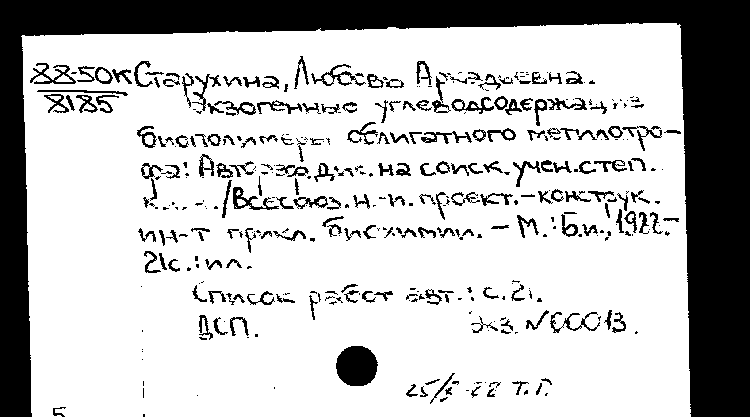 88-50К Старухина, Любовь Аркадьевна.
8185 Экзогенные углеводсодержащие
биополимеры облигатного метилотро-
фа: Автореф. дис. на соиск. учен. степ.
к. /Всесоюз. н.-и. проект.-конструк.
ин-т прикл. биохимии. - М.: Б.и., 1988.-
21с.: ил.
Список работ авт.: с. 21.
ДСП. Экз. N 00013.
Т.Г.
5